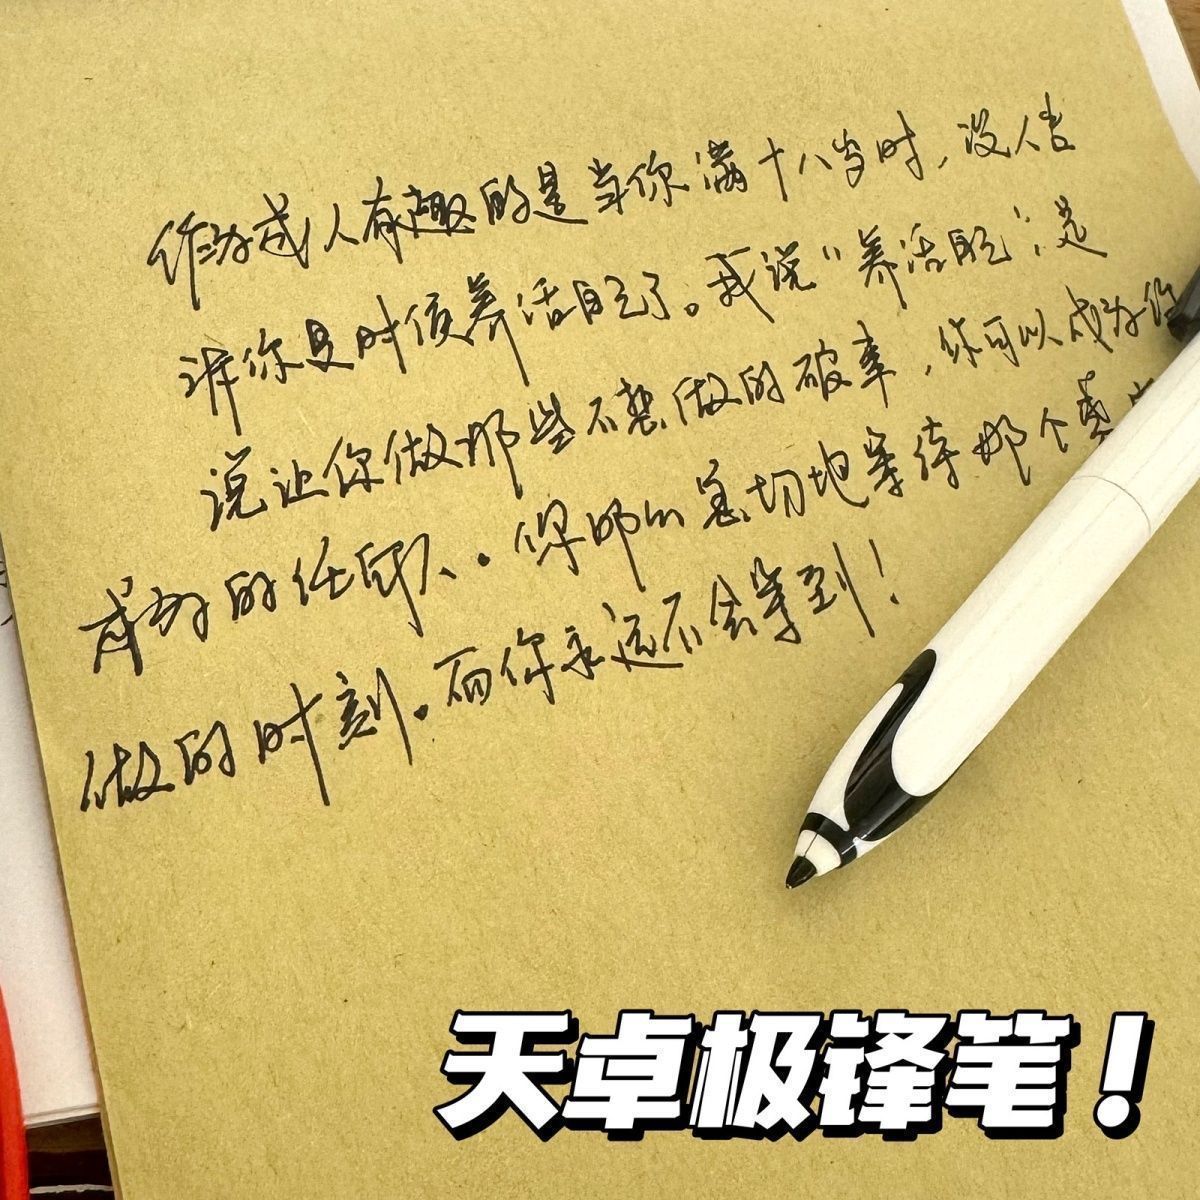 作为成人有趣的是当你满十八岁时，没人告
诉你是时候养活自己了。我说“养活自己”，是
说让你做那些不想做的破事，你可以成为你
成为的任何人。你那么急切地等待那个真
做的时刻。而你永远不会等到！
天卓极锋笔！